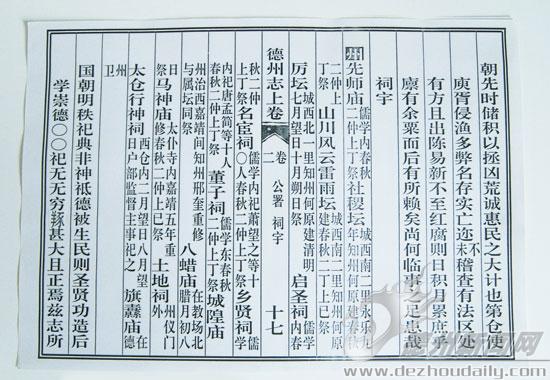 朝先时储积以拯凶荒诚惠民之大计也第仓使
庾胥侵渔多弊名存实亡迩来不稽查有法区处
有方且出陈易新不至红腐则日积月累庶乎
廪有余粟而后有所赖矣尚何临事之足患哉
祠宇
州先师庙儒学内春秋二仲上丁祭社稷坛城西南二里永乐九年知州何原建春秋
二仲上丁祭山川风云雷雨坛城西南二里知州何原建春秋二丁上巳祭
厉坛城西北一里知州何原建清明七月望日十月朔日祭启圣祠儒学内春
德州志上卷 卷二 公署 祠宇 十七
秋二仲上丁祭名宦祠儒学内祀萧望之等十〇人春秋二仲上丁祭乡贤祠儒学
内祀唐孟简等十人春秋二仲上丁祭董子祠儒学东春秋二仲上丁祭城隍庙
州治西嘉靖间知州邢奎重修与属坛同祭八蜡庙在教场北腊月初八
日祭马神庙太仆寺内嘉靖五年重修春秋二仲上巳祭土地祠州仪门外
太仓行神祠西仓内二月望日八月望日户部监督主事祀之旗纛庙在德州
卫
国朝明秩祀典非神祇德被生民则圣贤功造后
学崇德〇〇祀无无穷猕甚大且正焉兹志所
德州新闻网
www.dezhoudaily.com